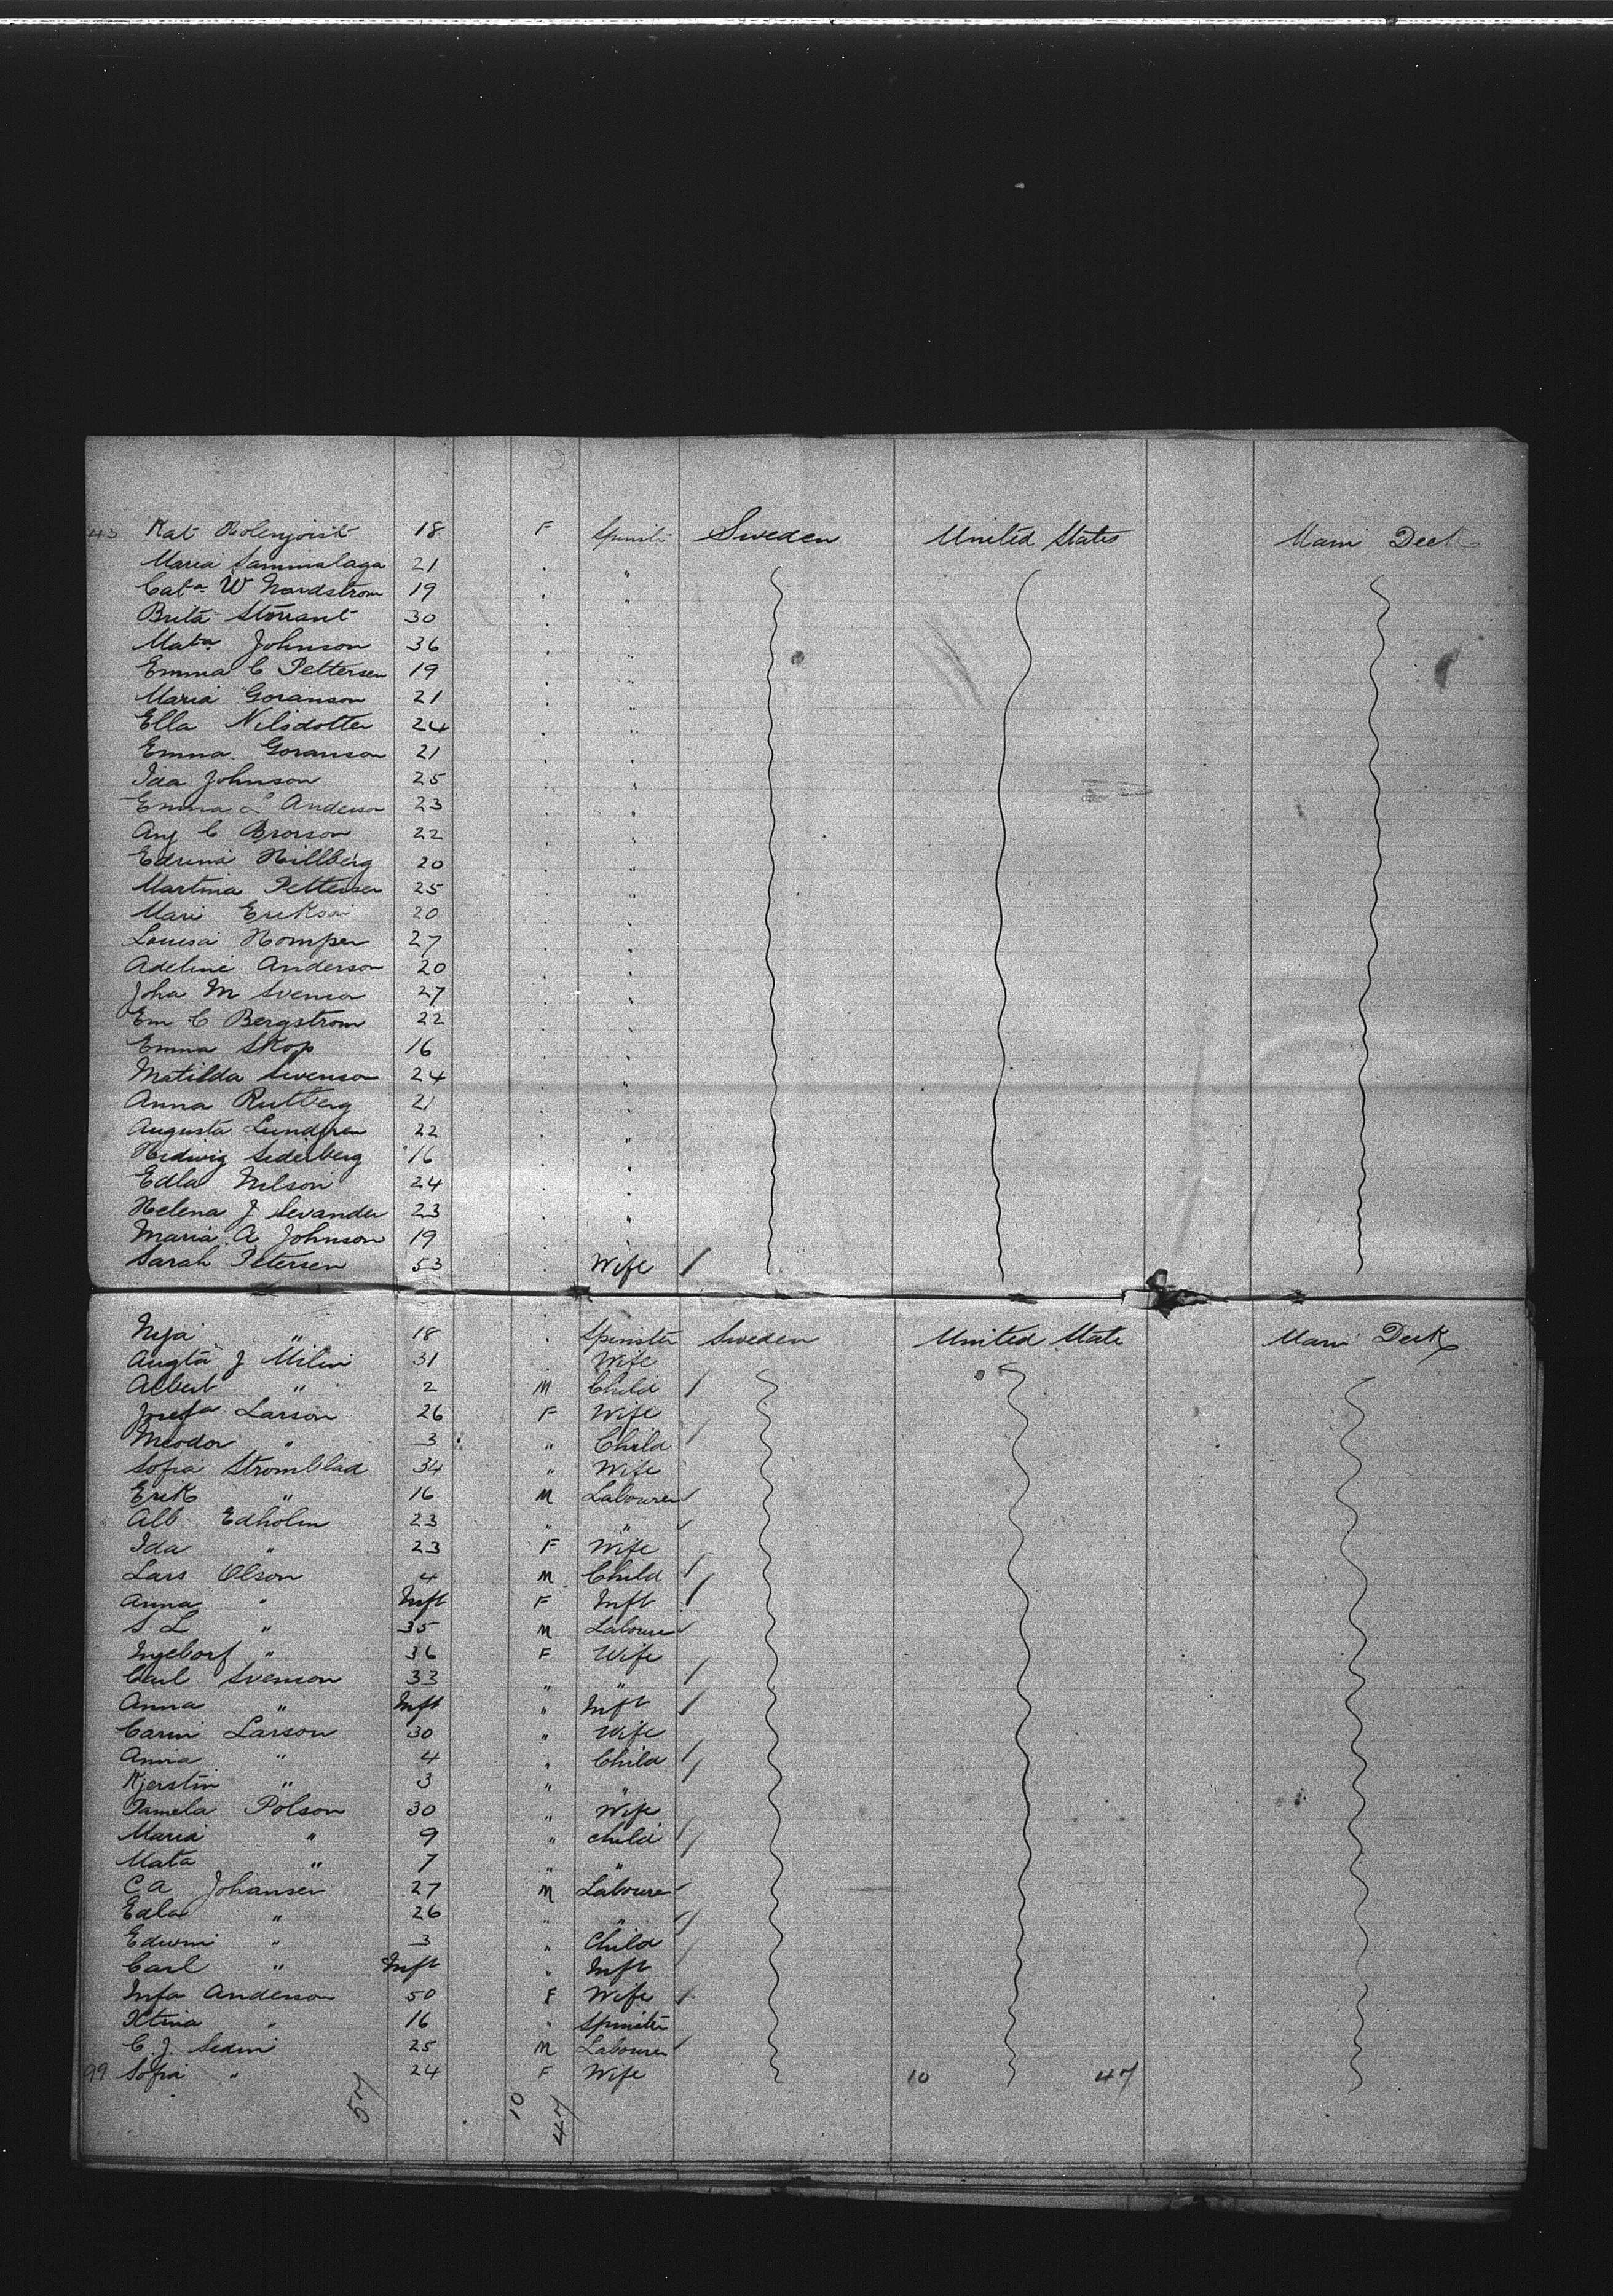 43 Kat Holmqvist 18 F Spinstr Sweden United States Main Deck
Maria Sammalaga 21 . "
Cata W Nordstrom 19 . "
Brita Storrant 30 . "
Mata Johnson 36 . "
Emma C Pettersen 19 . "
Maria Goranson 21 . "
Ella Nilsdotter 24 . "
Emma Goranson 21 . "
Ida Johnson 25 . "
Emma L Anderson 23 . "
Aug C Brorson 22 . "
Edrina Hillberg 20 . "
Martina Pettersen 25 . "
Mari Erikson 20 . "
Louisa Homper 27 . "
Adeline Anderson 20 . "
Joha M Svenson 27 . "
Em C Bergstrom 22 . "
Emma Skop 16 . "
Matilda Svenson 24 . "
Anna Rutberg 21 . "
Augusta Lundgren 22 . "
Hedwig Sederberg 16 . "
Edla Nilson 24 . "
Helena J Sevander 23 . "
Maria A Johnson 19 . "
Sarah Petersen 53 . Wife /
" 18 . Spinster Sweden United State Main Deck
Augta J Milin 31 . Wife
Albert " 2 M Child /
Josefa Larson 26 F Wife
" 3 " Child /
Sofia Stromblad 34 " Wife
Erik " 16 M Labourer /
Alb Edholm 23 " " /
Ida " 23 F Wife
Lars Olson 4 M Child /
Anna " Inft F Inft /
S. L " 35 M Labourer /
Ingeborf " 36 F Wife
Carl Svenson 33 " " /
Anna " Inft " Inft /
Carin Larson 30 " Wife
Anna " 4 " Child /
Kjerstin " 3 " " /
Pamela Polson 30 " Wife
Maria " 9 " child /
Mata " 7 " " /
C A Johansen 27 M Labourer /
Edla " 26 " " /
Edwin " 3 " Child /
Carl " Inft " Inft /
Anderson 50 F Wife /
Xtina " 16 " Spinster
C. J. Sedin 25 M Labourer /
99 Sofia " 24 F Wife 10 47
57 10 47